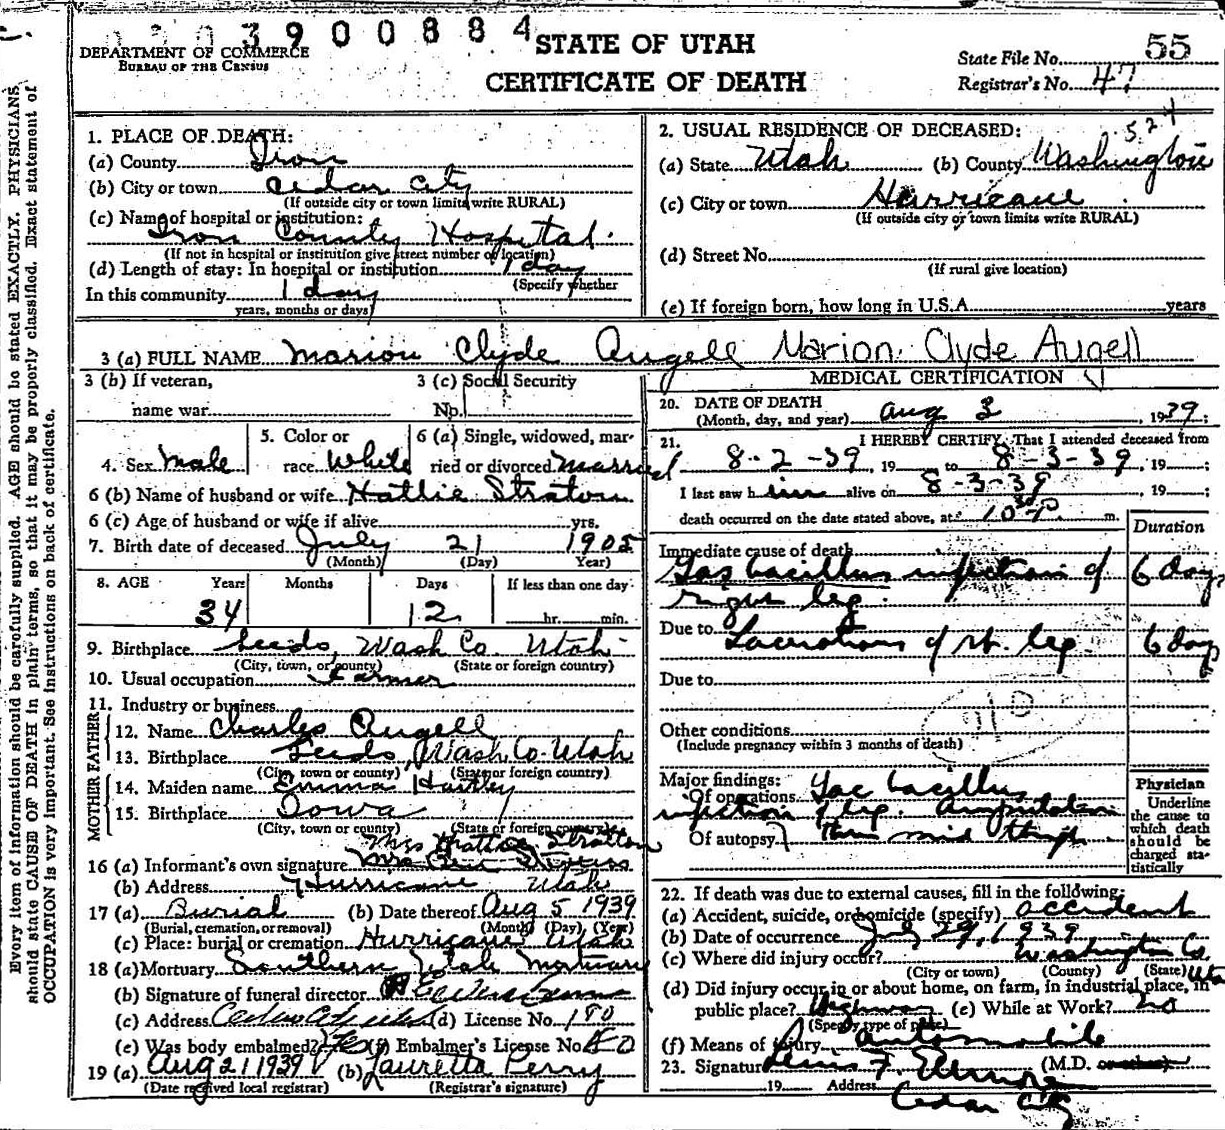 3900884
STATE OF UTAH
CERTIFICATE OF DEATH
DEPARTMENT OF COMMERCE
BUREAU OF THE CENSUS
State File No. 55
Registrar's No. 47
Every item of information should be carefully supplied. AGE should be stated EXACTLY. PHYSICIANS
should state CAUSE OF DEATH in plain terms, so that it may be properly classified. Exact statement of
OCCUPATION is very important. See instructions on back of certificate.
1. PLACE OF DEATH:
(a) County Iron
(b) City or town Cedar City
(If outside city or town limits write RURAL)
(c) Name of hospital or institution:
Iron County Hospital
(If not in hospital or institution give street number or location)
(d) Length of stay: In hospital or institution 1 day
(Specify whether
In this community 1 day
years, months or days)
2. USUAL RESIDENCE OF DECEASED:
(a) State Utah (b) County Washington
(c) City or town Hurricane
(If outside city or town limits write RURAL)
(d) Street No.
(If rural give location)
(e) If foreign born, how long in U.S.A. years
3 (a) FULL NAME Marion Clyde Angell Marion Clyde Angell
3 (b) If veteran,
name war
3 (c) Social Security
No.
4. Sex Male
5. Color or
race White
6 (a) Single, widowed, mar-
ried or divorced Married
6 (b) Name of husband or wife Hattie Stratton
6 (c) Age of husband or wife if alive yrs.
7. Birth date of deceased July 21 1905
(Month) (Day) Year)
8. AGE Years Months Days If less than one day
34 12 hr. min.
9. Birthplace Leeds, Wash Co. Utah
(City, town, or county) (State or foreign country)
10. Usual occupation Farmer
11. Industry or business
FATHER
12. Name Charles Angell
13. Birthplace Leeds, Wash Co. Utah
(City, town or county) (State or foreign country)
MOTHER
14. Maiden name Emma Hartley
15. Birthplace Iowa
(City, town or county) (State or foreign country)
Mrs Hattie Stratton
16 (a) Informant's own signature Mrs
(b) Address Hurricane Utah
17 (a) Burial (b) Date thereof Aug 5 1939
(Burial, cremation, or removal) (Month) (Day) (Year)
(c) Place: burial or cremation Hurricane Utah
18 (a) Mortuary Southern Utah Mortuary
(b) Signature of funeral director
(c) Address (d) License No. 180
(e) Was body embalmed? Yes (f) Embalmer's License No.
19 (a) Aug 21 1939 (b) Lauretta Perry
(Date received local registrar) (Registrar's signature)
MEDICAL CERTIFICATION
20. DATE OF DEATH
(Month, day, and year) Aug 3, 1939;
21. I HEREBY CERTIFY, That I attended deceased from
8-2-39, 19 to 8-3-39, 19 ;
I last saw him alive on 8-3-39, 19 ;
death occurred on the date stated above, at m.
Duration
Immediate cause of death
Gas bacillus infection of 6 days
right leg.
Due to Lacerations of rt. leg 6 days
Due to
Other conditions
(Include pregnancy within 3 months of death)
Major findings:
Of operations Gas bacillus
infection of leg. Amputation
Of autopsy thru mid thigh
Physician
Underline
the cause to
which death
should be
charged sta-
tistically
22. If death was due to external causes, fill in the following:
(a) Accident, suicide, or homicide (specify) accident
(b) Date of occurrence July 29, 1939
(c) Where did injury occur? Washington Co. Uta
(City or town) (County) (State)
(d) Did injury occur in or about home, on farm, in industrial place, in
public place? Highway (e) While at Work? no
(Specify type of place)
(f) Means of injury Automobile
23. Signature F. (M.D. or other)
19 Address Cedar City